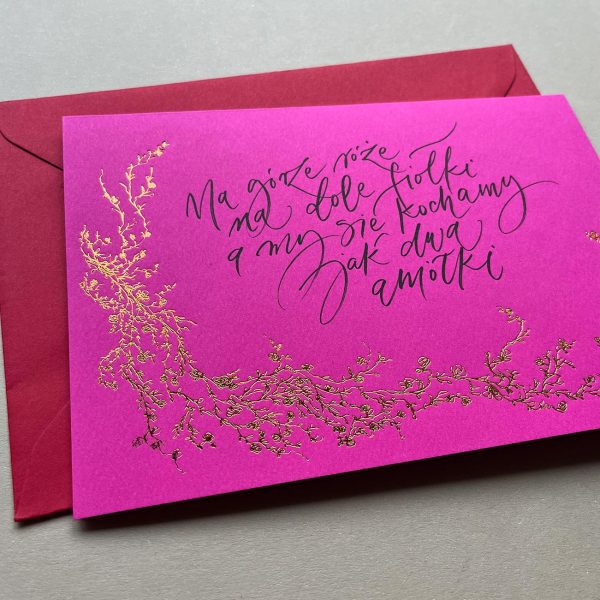 Na górze róże
na dole fiołki
a my się kochamy
jak dwa
aniołki